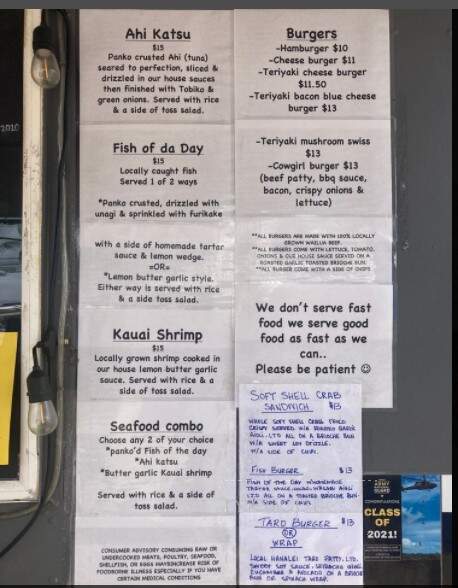 Ahi Katsu
$15
Panko crusted Ahi (tuna)
seared to perfection, sliced &
drizzled in our house sauces
then finished with Tobiko &
green onions. Served with rice
& a side of toss salad.
Fish of da Day
$15
Locally caught fish
Served 1 of 2 ways
*Panko crusted, drizzled with
unagi & sprinkled with furikake
with a side of homemade tartar
sauce & lemon wedge.
=OR=
*Lemon butter garlic style.
Either way is served with rice
& a side toss salad.
Kauai Shrimp
$15
Locally grown shrimp cooked in
our house lemon butter garlic
sauce. Served with rice & a
side of toss salad.
Seafood combo
Choose any 2 of your choice
*panko'd Fish of the day
*Ahi katsu
*Butter garlic Kauai shrimp
Served with rice & a side of
toss salad.
CONSUMER ADVISORY CONSUMING RAW OR
UNDERCOOKED MEATS, POULTRY, SEAFOOD,
SHELLFISH, OR EGGS MAY INCREASE RISK OF
FOODBORNE ILLNESS ESPECIALLY IF YOU HAVE
CERTAIN MEDICAL CONDITIONS
Burgers
-Hamburger $10
-Cheese burger $11
-Teriyaki cheese burger
$11.50
-Teriyaki bacon blue cheese
burger $13
-Teriyaki mushroom swiss
$13
-Cowgirl burger $13
(beef patty, bbq sauce,
bacon, crispy onions &
lettuce)
**ALL BURGERS ARE MADE WITH 100% LOCALLY
GROWN WAILUA BEEF.
**ALL BURGERS COME WITH LETTUCE, TOMATO,
ONIONS & OUR HOUSE SAUCE SERVED ON A
ROASTED GARLIC TOASTED BRIOCHE BUN.
**ALL BURGER COME WITH A SIDE OF CHIPS
We don't serve fast
food we serve good
food as fast as we
can..
Please be patient ☺
SOFT SHELL CRAB
SANDWICH $13
WHOLE SOFT SHELL CRAB FRIED
CRISPY SERVED W/A ROASTED GARLIC
AIOLI. LTO ALL ON A BRIOCHE BUN
W/A SWEET SOY DRIZZLE.
W/A SIDE OF CHIPS
FISH BURGER $13
FISH OF THE DAY W/HOMEMADE
TARTAR SAUCE
LTO ALL ON A TOASTED BRIOCHE BUN
W/A SIDE OF CHIPS
TARO BURGER $13
OR
WRAP
LOCAL HANALEI TARO PATTY, LTO,
SWEET SOY SAUCE, SRIRACHA AIOLI,
CUCUMBER & AVOCADO ON A BRIOCHE
BUN OR SPINACH WRAP.
2010
CLASS
OF
2021!